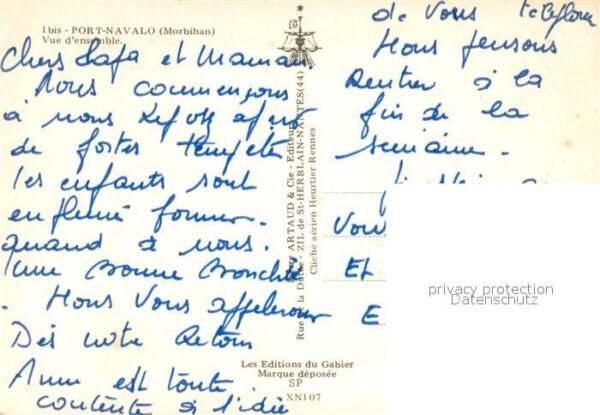 1bis - PORT-NAVALO (Morbihan)
Vue d'ensemble.
Chers Papa et Maman.
Nous commençons
à nous après
de fortes tempête
les enfants sont
en pleine forme.
quand à nous.
Une Bonne Bronchite
. Nous Vous appellerons
Dès notre Retour
Anne est toute
contente à l'idée
de Vous
Nous pensons
Rentrer à la
fin de la
semaine.
Vou
Et
E
ARTAUD & Cie - Editeur
Rue de la - ZIL de St-HERBLAIN-NANTES(44)
Cliché aérien Heurtier Rennes
Les Editions du Gabier
Marque déposée
SP
XN107
privacy protection
Datenschutz